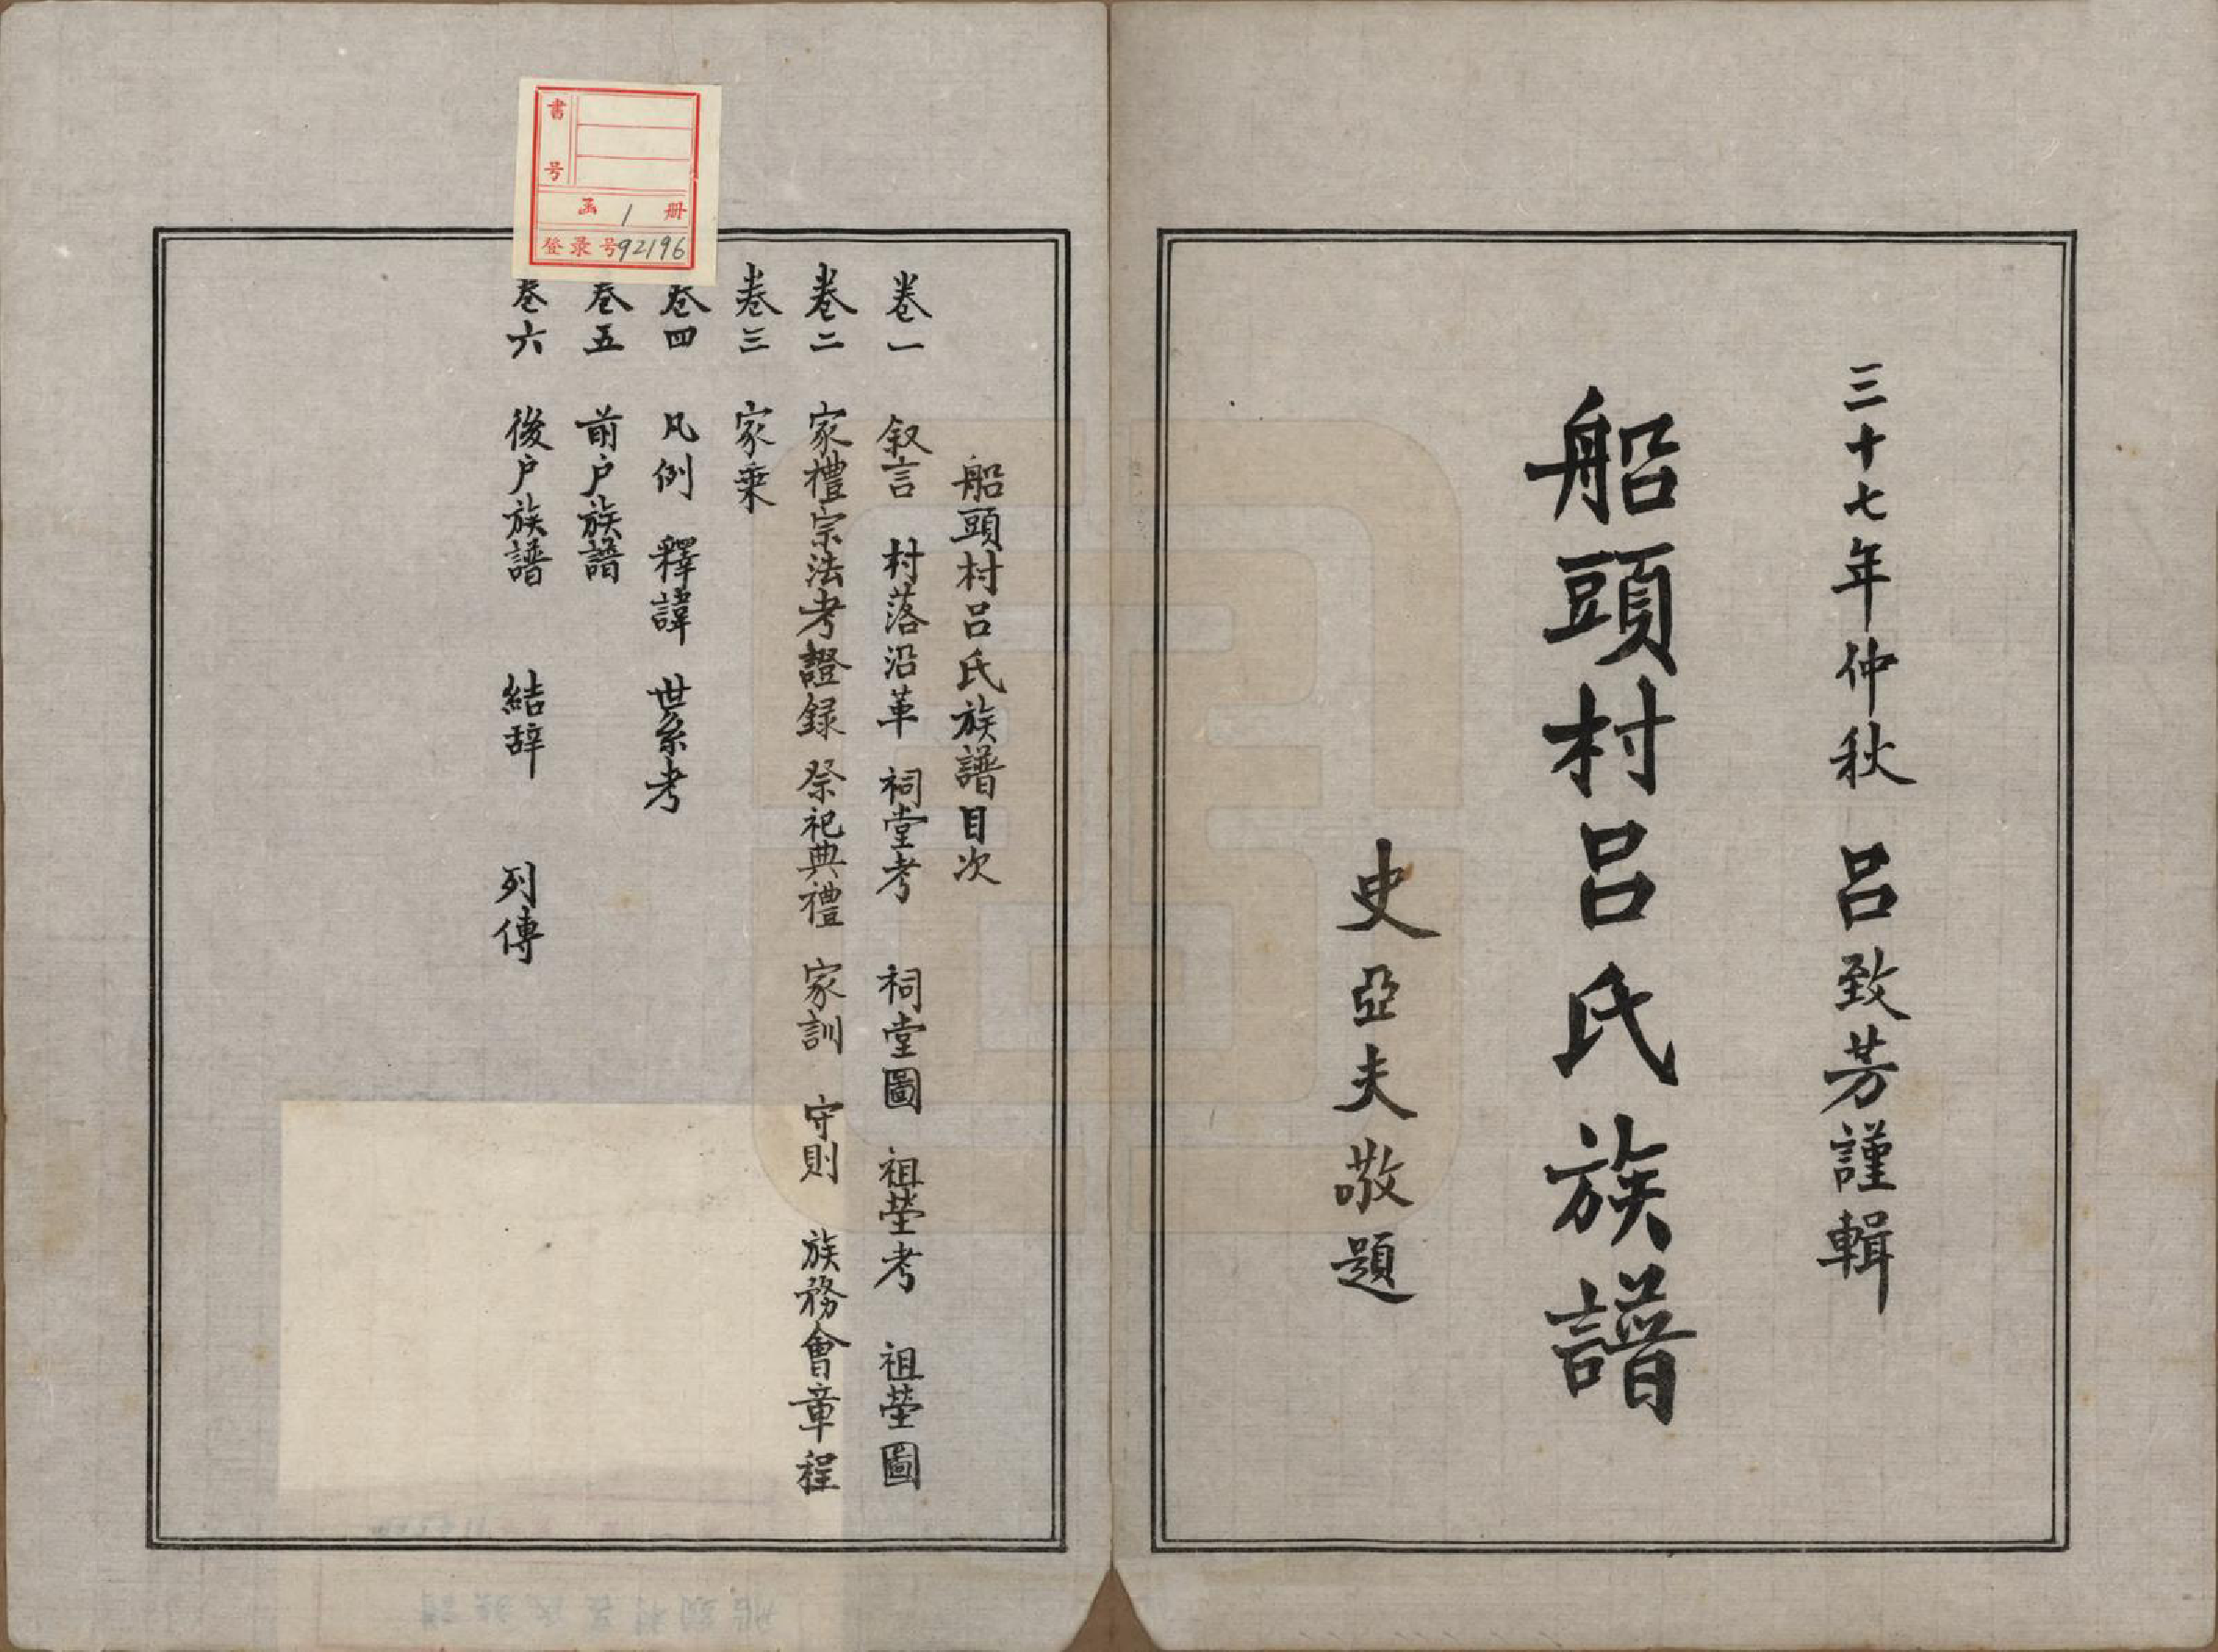 三十七年仲秋 呂致芳謹輯
船頭村呂氏族譜
史亞夫敬題
船頭村呂氏族譜目次
卷一 叙言 村落沿革 祠堂考 祠堂圖 祖塋考 祖塋圖
卷二 家禮宗法考證録 祭祀典禮 家訓 守則 族務會章程
卷三 家乘
卷四 凡例 釋諱 世系考
卷五 前户族譜
卷六 後户族譜 結辞 列傳
書号
函 1 册
登录号92196